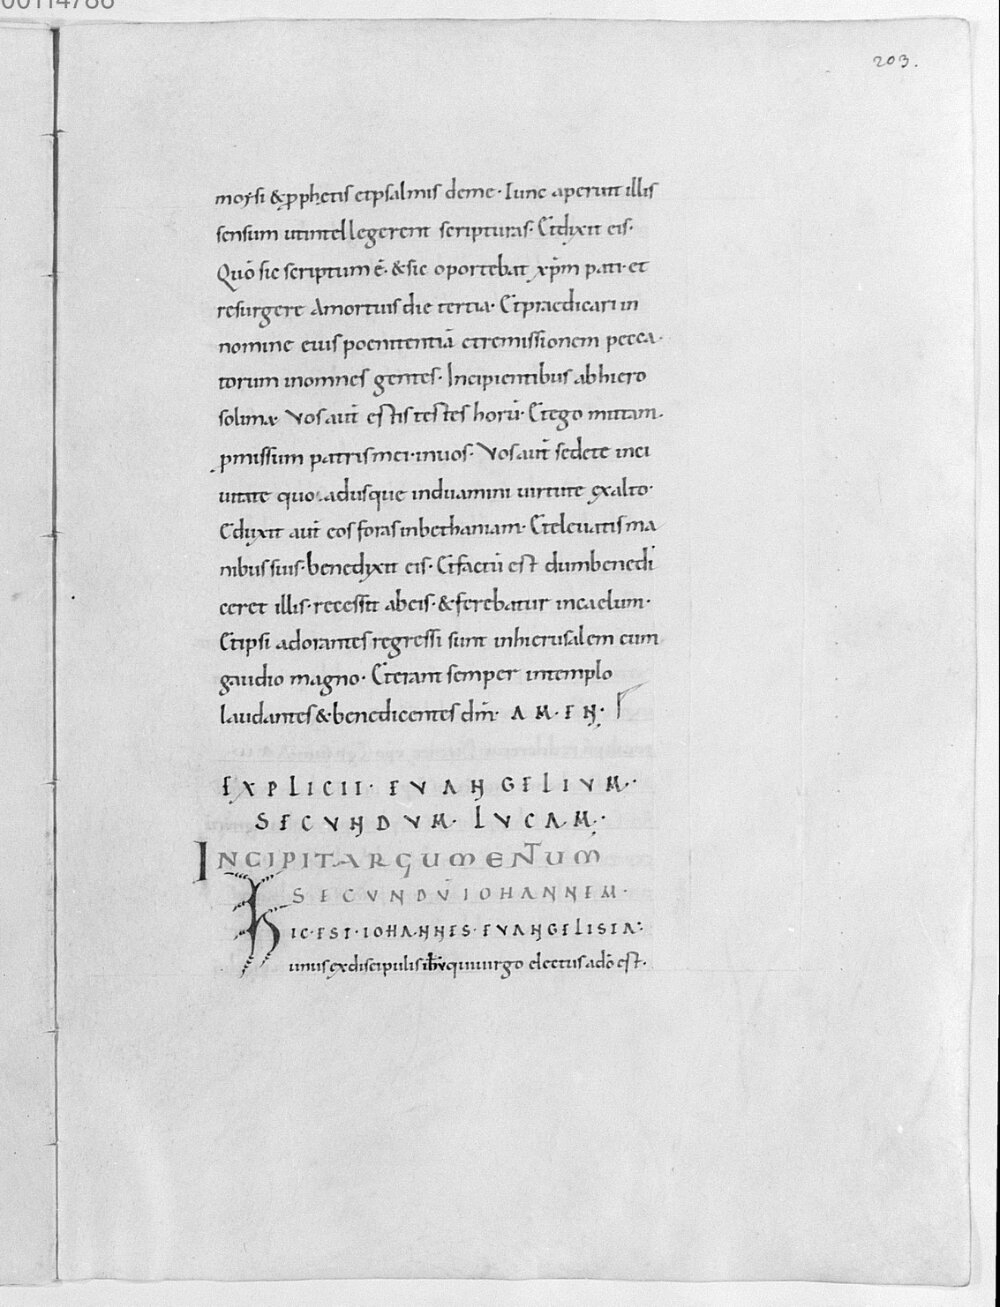 00114786
203.
moysi & ꝓphetis et psalmis de me· Tunc aperuit illis
sensum ut intellegerent scripturas· Et dixit eis·
Quō sic scriptum ē· & sic oportebat xp̄m pati· et
resurgere A mortuis die tertia· Et praedicari in
nomine eius poenitentiā et remissionem pecca·
torum in omnes gentes· Incipientibus ab hiero
solima· Vos aut̄ estis testes horū· Et ego mittam·
ꝓmissum patris mei· in uos· Vos aut̄ sedete in ci
uitate quo adusque induamini uirtute ex alto·
Eduxit aut̄ eos foras in bethaniam· Et eleuatis ma
nibus suis· benedixit eis· Et factū est dum benedi
ceret illis· recessit ab eis· & ferebatur in caelum·
Et ipsi adorantes regressi sunt in hierusalem cum
gaudio magno· Et erant semper in templo
laudantes & benedicentes dm̄· AMEN·
EXPLICIT· EVANGELIVM·
SECVNDVM· LVCAM·
INCIPIT ARGUMENTUM
SECVNDV̄ IOHANNEM·
HIC· EST· IOHANNES· EVANGELISTA·
unus ex discipulis ihu qui uirgo electus a dō est·